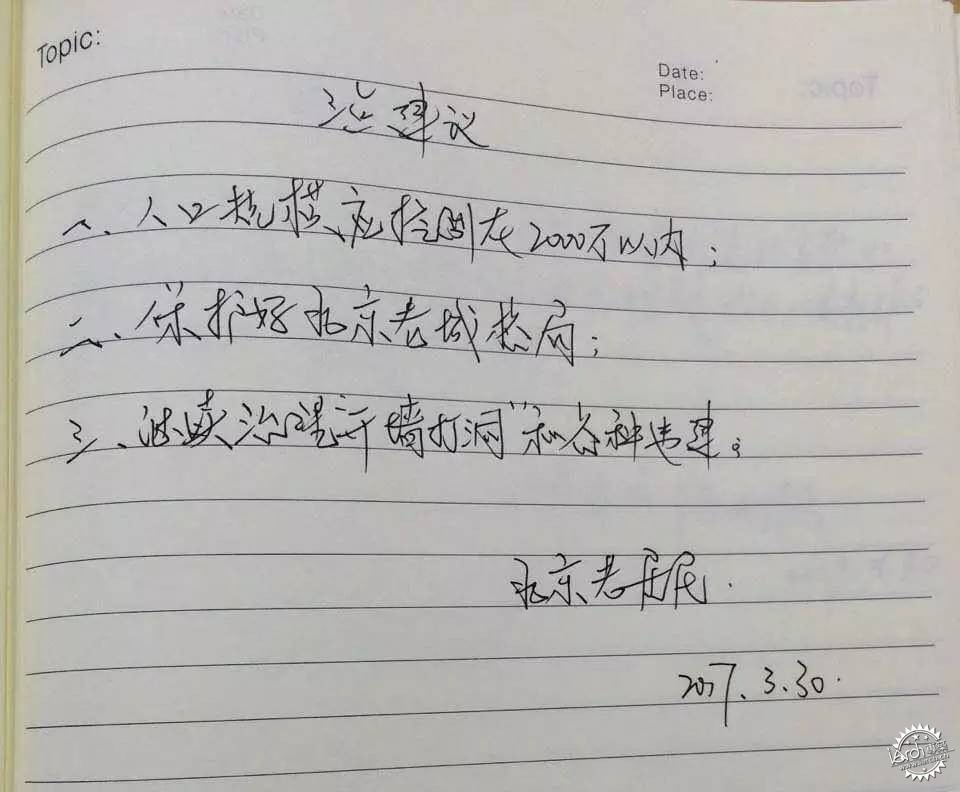 Topic:
Date:
Place:
建议
一、人口规模应控制在2000万以内；
二、保护好北京老城格局；
三、治理"开墙打洞"和各种违建。
北京老居民.
2017.3.30.